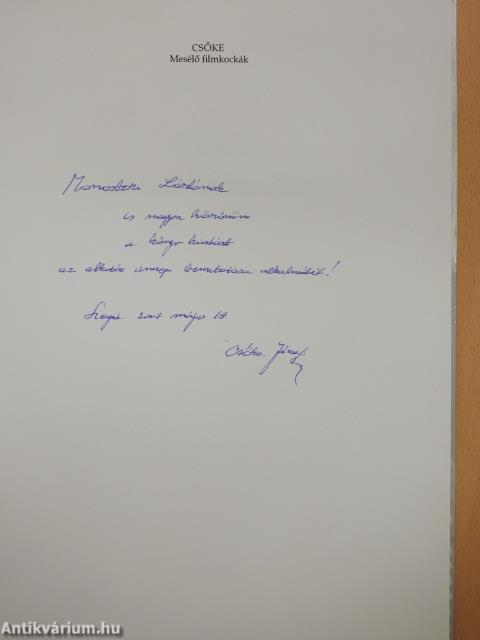 CSŐKE
Mesélő filmkockák
Monostori Lászlónak
is nagyon köszönöm
a könyv kiadását
az alkotás ünnepi bemutatása alkalmából!
Szeged 2007 május
Csőke József
Antikvárium.hu